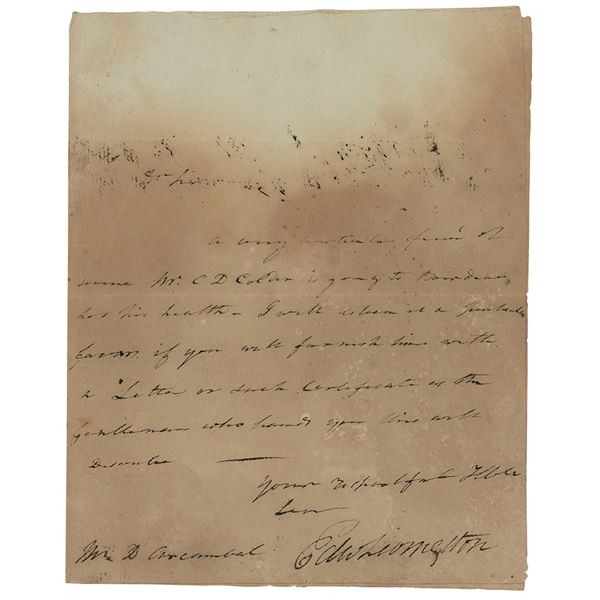 Dr Sir
a very particular friend of
mine Mr. C D Colden is going to Bourdeaux
for his health - I will esteem it a particular
favor, if you will furnish him with
a Letter or such Certificate as the
gentleman who hands you this will
Describe
Your respectful Hble
Ser
Edw Livingston
Mr D Arcambal